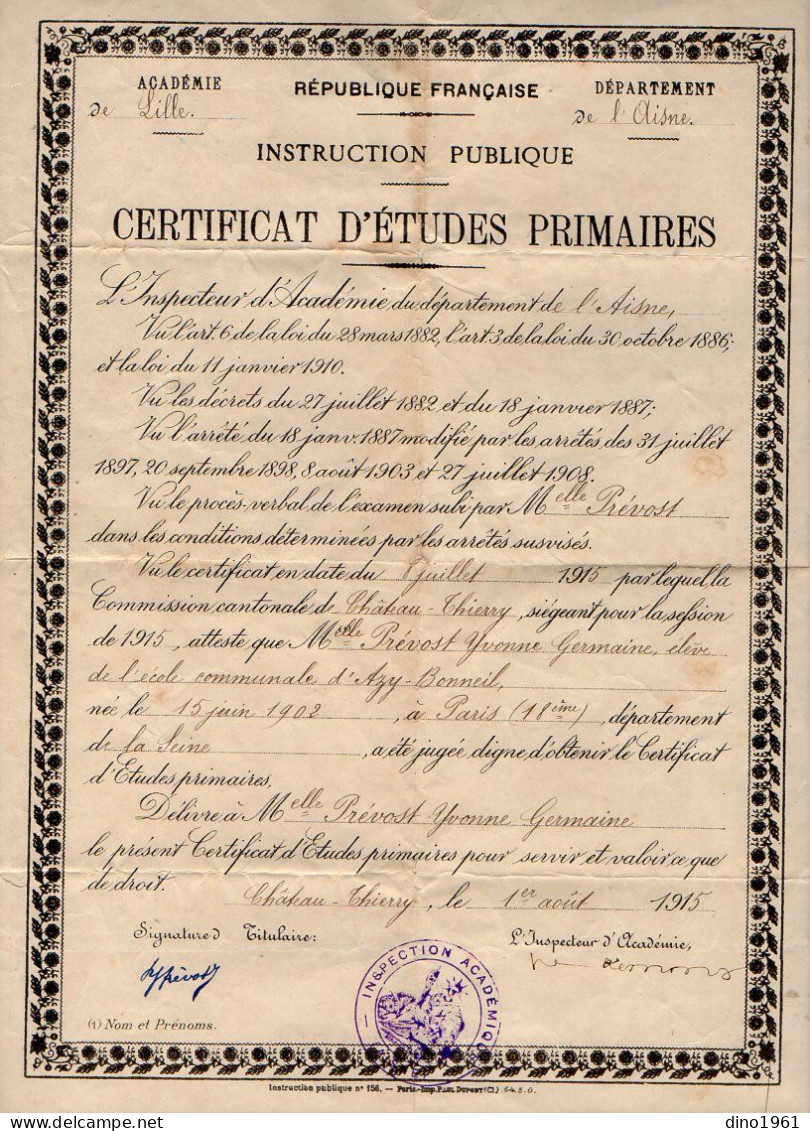 ACADÉMIE
de Lille.
RÉPUBLIQUE FRANÇAISE
DÉPARTEMENT
de l'Aisne.
INSTRUCTION PUBLIQUE
CERTIFICAT D'ÉTUDES PRIMAIRES
L'Inspecteur d'Académie du département de l'Aisne,
Vu l'art. 6 de la loi du 28 mars 1882, l'art 3 de la loi du 30 octobre 1886;
et la loi du 11 janvier 1910.
Vu les décrets du 27 juillet 1882 et du 18 janvier 1887;
Vu l'arrêté du 18 janv. 1887 modifié par les arrêtés des 31 juillet
1897, 20 septembre 1898, 8 août 1903 et 27 juillet 1908.
Vu le procès-verbal de l'examen subi par Melle Prévost
dans les conditions déterminées par les arrêtés susvisés.
Vu le certificat en date du 8 juillet 1915 par lequel la
Commission cantonale de Château-Thierry, siégeant pour la session
de 1915, atteste que Melle Prévost Yvonne Germaine, élève
de l'école communale d'Azy-Bonneil,
née le 15 juin 1902, à Paris (18ème), département
de la Seine, a été jugée digne d'obtenir le Certificat
d'Etudes primaires.
Délivré à Melle Prévost Yvonne Germaine
le présent Certificat d'Etudes primaires pour servir et valoir ce que
de droit.
Château-Thierry, le 1er août 1915
Signature d Titulaire:
L'Inspecteur d'Académie,
YPrévost
INSPECTION ACADÉMIQUE
(1) Nom et Prénoms.
Instruction publique n° 156. — Paris.-Imp. PAUL DUPONT (Cl.) 64.5.0.
dino1961